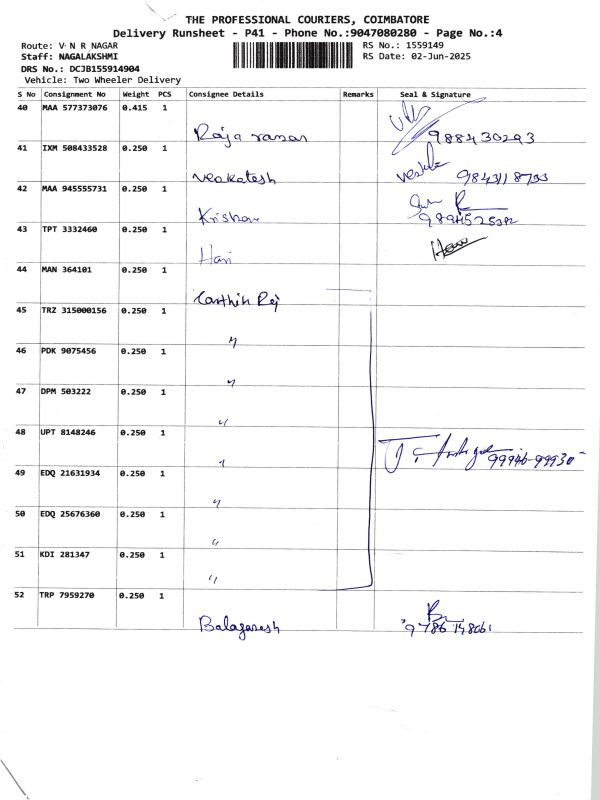 THE PROFESSIONAL COURIERS, COIMBATORE
Delivery Runsheet - P41 - Phone No.:9047080280 - Page No.:4
Route: V N R NAGAR
RS No.: 1559149
Staff: NAGALAKSHMI
RS Date: 02-Jun-2025
DRS No.: DCJB155914904
Vehicle: Two Wheeler Delivery
S No Consignment No Weight PCS Consignee Details Remarks Seal & Signature
40 MAA 577373076 0.415 1
Raja raman 988430293
41 IXM 508433528 0.250 1
Venkatesh 9843118733
42 MAA 945555731 0.250 1
Krishan
43 TPT 3332460 0.250 1
Hari
44 MAN 364101 0.250 1
Karthik Raj
45 TRZ 315000156 0.250 1
"
46 PDK 9075456 0.250 1
"
47 DPM 503222 0.250 1
"
48 UPT 8148246 0.250 1
" 99946-99930
49 EDQ 21631934 0.250 1
"
50 EDQ 25676360 0.250 1
"
51 KDI 281347 0.250 1
"
52 TRP 7959270 0.250 1
Balaganesh